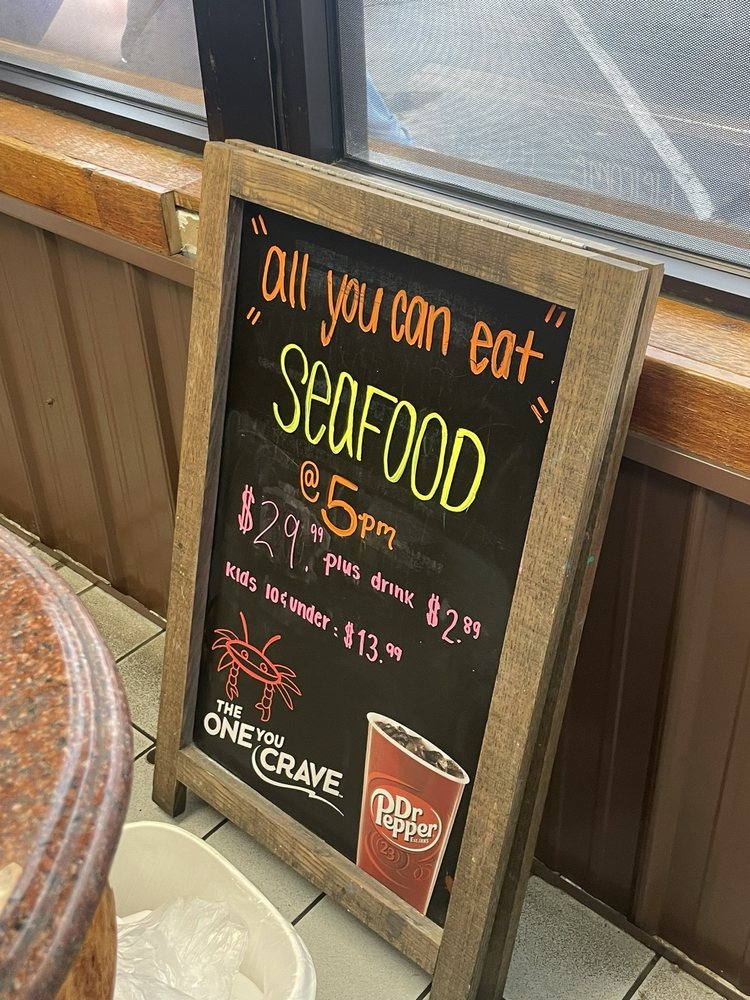 "all you can eat"
SeaFOOD
@ 5pm
$29.99 plus drink $2.89
Kids 10 & under: $13.99
THE
ONE YOU
CRAVE
Dr
Pepper
23